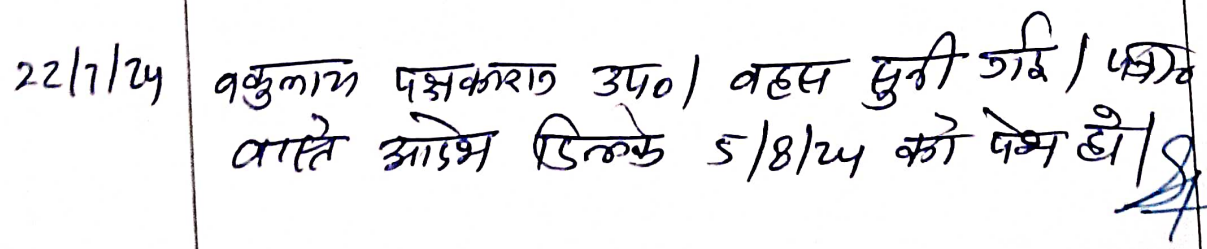 22/7/24 वकुलाय पक्षकारान उप०। वहस सुनी गई। पत्रा०
वास्ते आदेश दिनांक 5/8/24 को पेश हो।